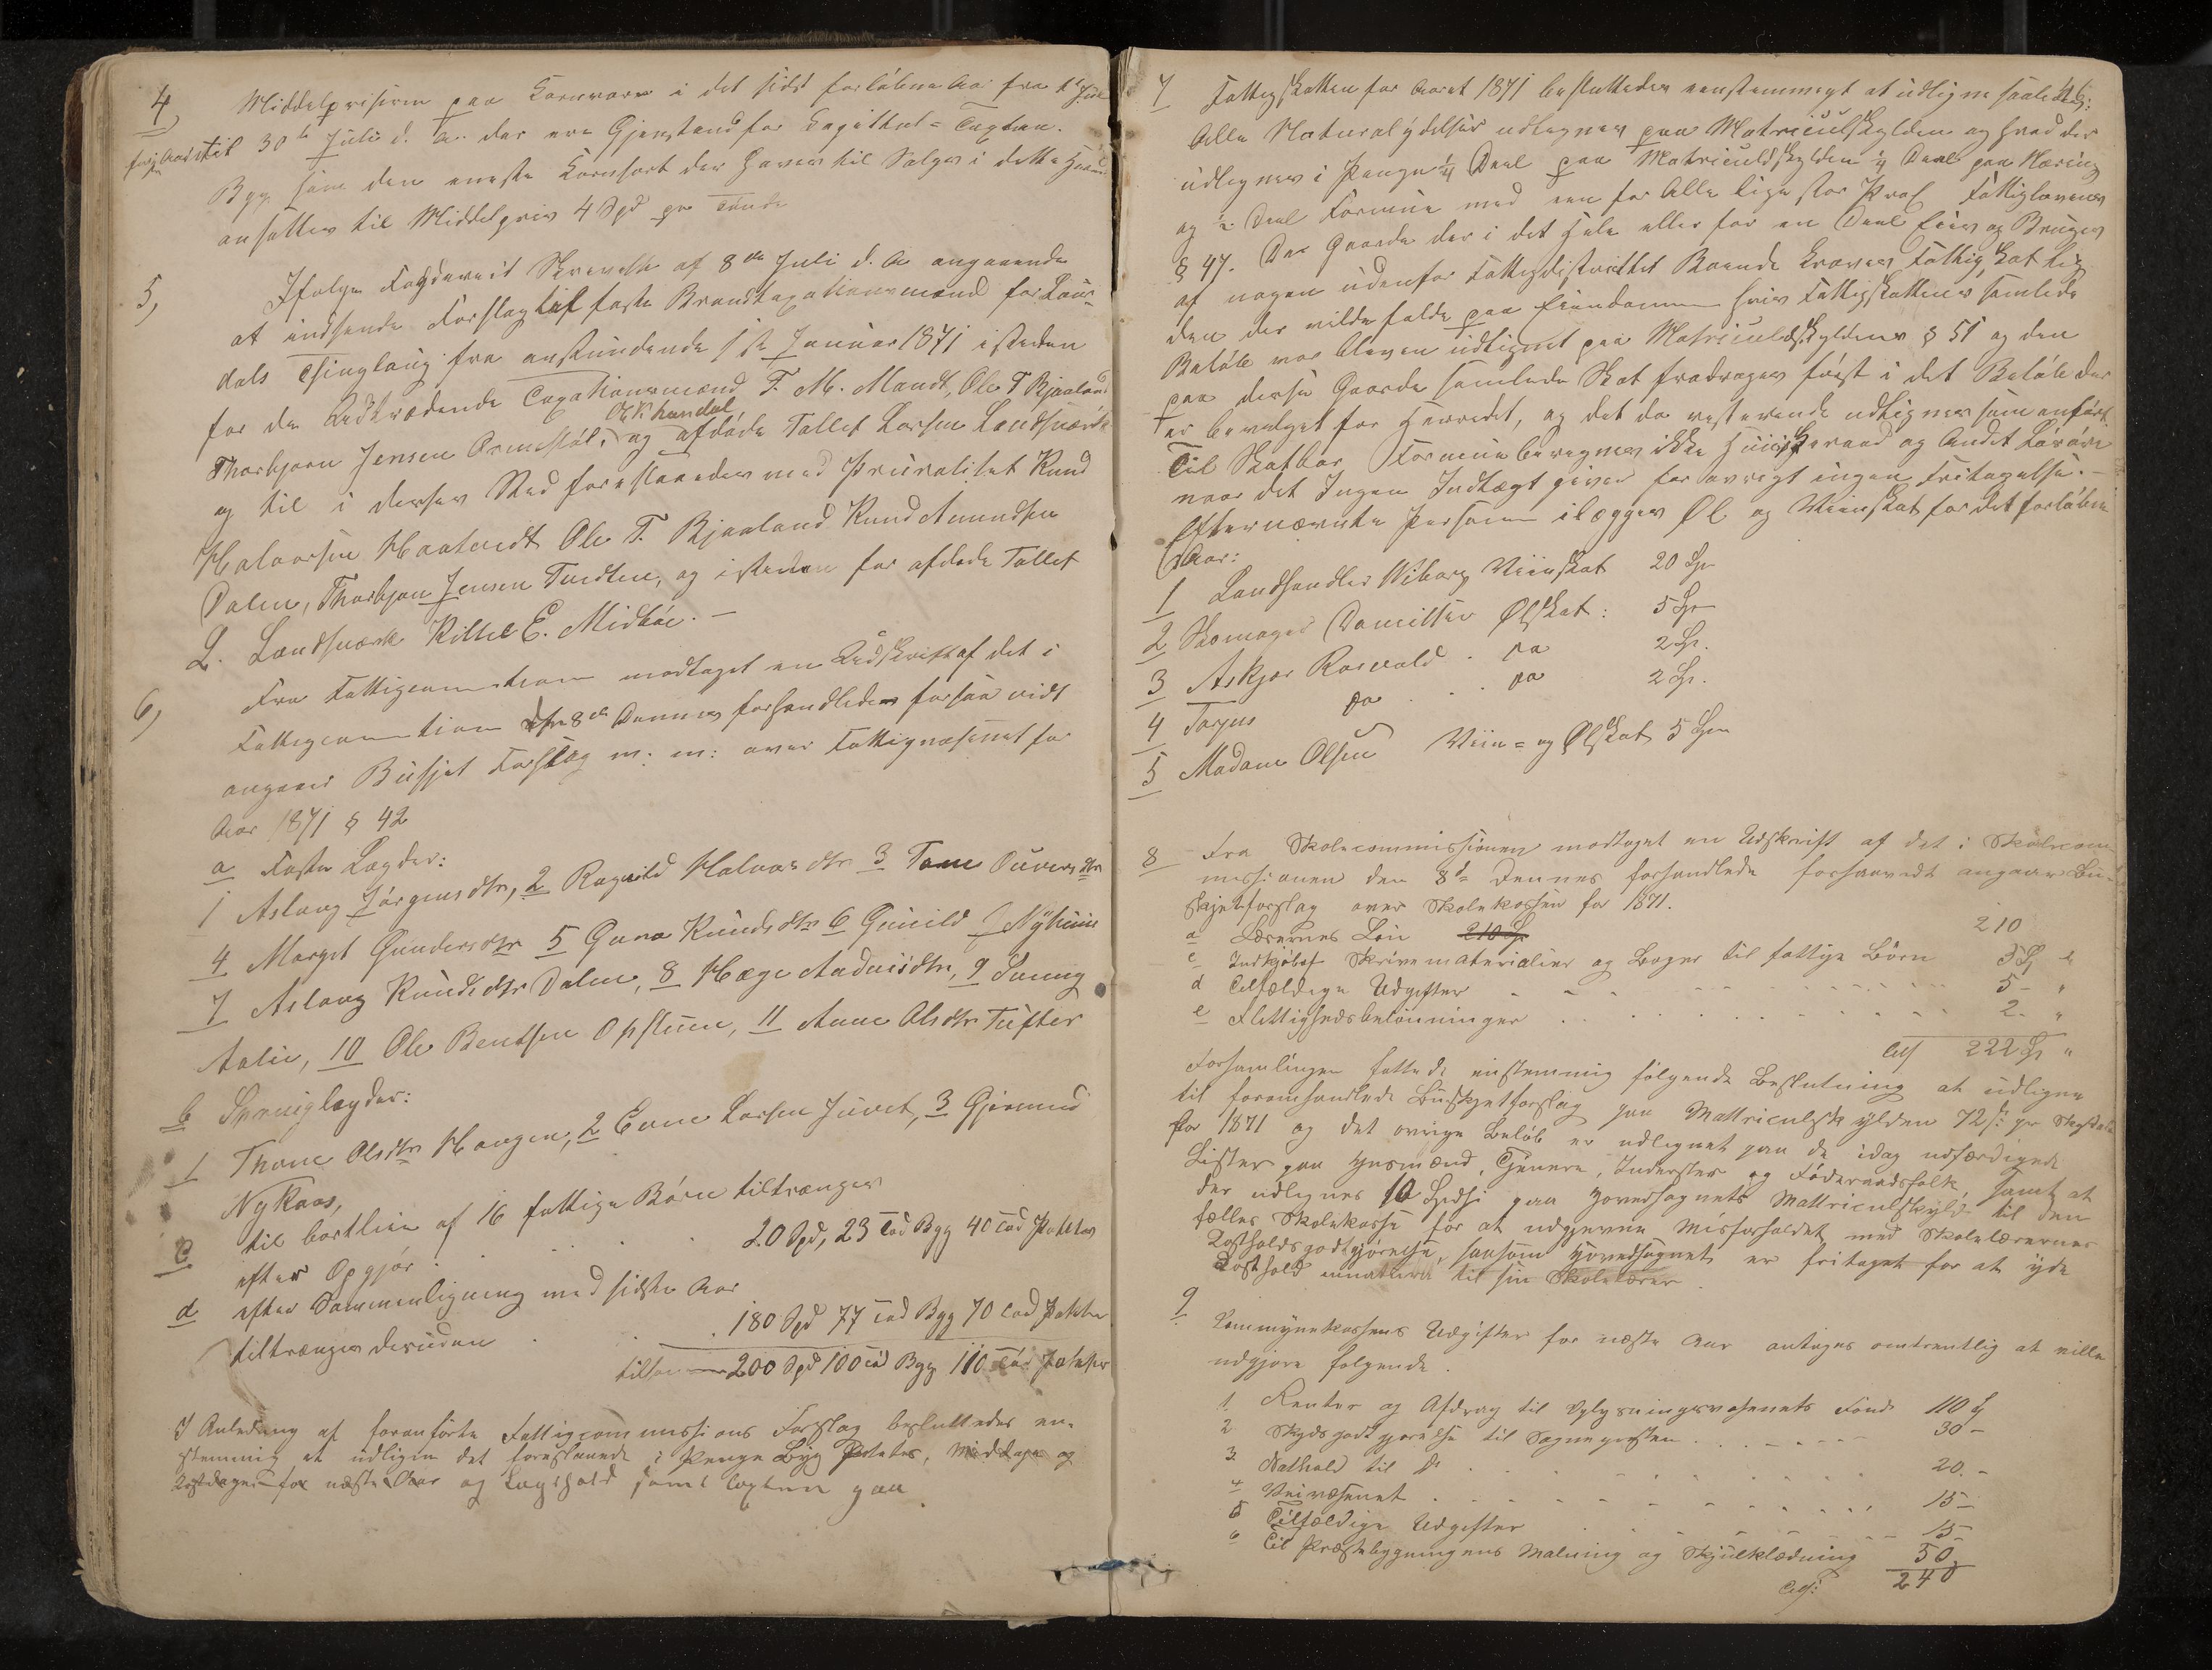 4, Middelprisern paa Kornvare i det sidst forløbne Aar fra 1ste Juli
forj. Aar til 30te Juli d. A. der ere Gjenstand for Kapittel-Taxten.
Byg som den eneste Kornsort der haves til Salgs i dette Herred
ansattes til Middelpris 4 Spd pr Tønde
5, Ifølge Fogderiets Skrivelse af 8de Juli d. A. angaaende
at indsende Forslag til faste Brandtaxationsmænd for Laur-
dals Thinglaug fra anstundende 1ste Januar 1871 isteden
for de Udtrædende Taxationsmænd T. M. Mandt, Ole T. Bjaaland
Thorbjørn Jensen og afdøde Tallef Larsen Landsværk
og til i dersses Sted foresloges med Pluralitet Knud
Halvorsen Ole T. Bjaaland Knud Amundsen
Dalen, Thorbjørn Jensen Tvedten, og isteden for afdøde Tallef
L. Landsværk Kittil E. Midbøe. –
6, Fra Fattigcommissionen modtaget en Udskrift af det i
Fattigcommissionen den 8de Dennes forhandlede forsaavidt
angaaer Budsjet Forslag m: m: over Fattigvæsenet for
Aar 1871 § 42
a Faste Lægder:
1 Aslaug Jørgensdtr, 2 Ragnild Halvorsdtr 3 Tone
4 Margit Gundersdtr 5 Guro Knudsdtr 6 Gunild
7 Aslaug Knudsdtr Dalen, 8 Hæge 9
10 Ole Bentsen Opstuen, 11 Anne Olsdtr Tufter
b
1 Thone Olsdtr Haugen, 2 Even Larsen Juvet, 3 Gjermund
Nykaas,
c til bortleie af 16 fattige Børn tiltrænges
efter Opgjør . . . 20 Spd, 23 Tdr Byg 40 Tdr Poteter
d efter Sammenligning med sidste Aar
tiltrænges desuden . . . 180 Spd 77 Tdr Byg 70 Tdr Poteter
tilsammen 200 Spd 100 Tdr Byg 110 Tdr Poteter
I Anledning af foranførte Fattigcommissions Forslag besluttedes en-
stemmig at udligne det foreslaaede i Penge Byg Poteter, Middage og
Kostdage for næste Aar og Lægdhold samt Lægten paa
7 Fattigskatten for Aaret 1871 besluttedes eenstemmigt at udligne saaledes:
Alle Naturalydelser udlignes paa Matriculskylden og hvad der
udlignes i Penge ¼ Deel paa Matriculskylden ¼ Deel paa Næring
og ½ Deel Formue med een for Alle lige stor Fattiglovens
§ 47. Der Gaarde der i det Hele eller for en Deel Eies og Bruges
af nogen udenfor Fattigdistriktet Boende kræves Fattigskat lig
den der vilde falde paa Eiendommen hvis Fattigskattens samlede
Beløb var bleven udlignet paa Matriculskylden § 51 og den
paa disse Gaarde samlede Skat fradrages først i det Beløb der
er bevilget for Herredet, og det da resterende udlignes som anført.
Til Skatbar Formue beregnes ikke Huusgeraad og Andet Løsøre
naar det Ingen Indtægt giver for øvrigt ingen Fritagelse. –
Efternævnte Personer ilægges Øl og Viinskat for det forløbne
Aar:
1 Landhandler Wiborg Viinskat 20 Sp
2 Skomager Danielsen Ølskat: 5 Sp
3 Askjer Rosvald . Do 2 Sp.
4 Torgus Do . . Do 2 Sp.
5 Madame Olsen Viin= og Ølskat 5 Sp
8 Fra Skolecommissionen modtaget en Udskrift af det i Skolecom
missionen den 8de Dennes forhandlede forsaavidt angaar Bu-
skjetforslag over Skolekassen for 1871.
a Lærernes Løn 210 Sp 210
c Indkjøb af Skrivematerialier og Bøger til fattige Børn 5 Sp "
d Tilfældige Udgifter . . . 5 – "
e Flittighedsbelønninger . . . 2 – "
Tils 222 Sp "
Forsamlingen fattede enstemmig følgende Beslutning at udligne
til foranhandlede Buskjetforslag paa Mattriculskylden 72 s: pr Skyldaler
for 1871 og det øvrige Beløb er udlignet paa de idag udfærdigede
Lister paa Husmænd, Tjenere, Inderster og Føderaadsfolk, samt at
der udlignes 10 Spds: paa Hovedsognets Mattriculskyld til den
fælles Skolekasse for at udgjevne Misforholdet med Skolelærernes
Kostholdsgodtgjørelse, saasom Hovedsognet er fritaget for at yde
Kosthold innatura til sin Skolelærer.
9. Kommunekassens Udgifter for næste Aar antages omtrentlig at ville
udgjøre følgende.
1. Renter og Afdrag til Oplysningsvæsenets Fond 110 Sp
2 Skydsgodtgjørelse til Sognepresten . . . 30 –
3. Nathold til Do . . . 20. –
4 Veivæsenet . . . 15 –
5 Tilfældige Udgifter . . . 15 –
6 Til Præstebygningens Malning og Skjulklædning 50
Tils: 240